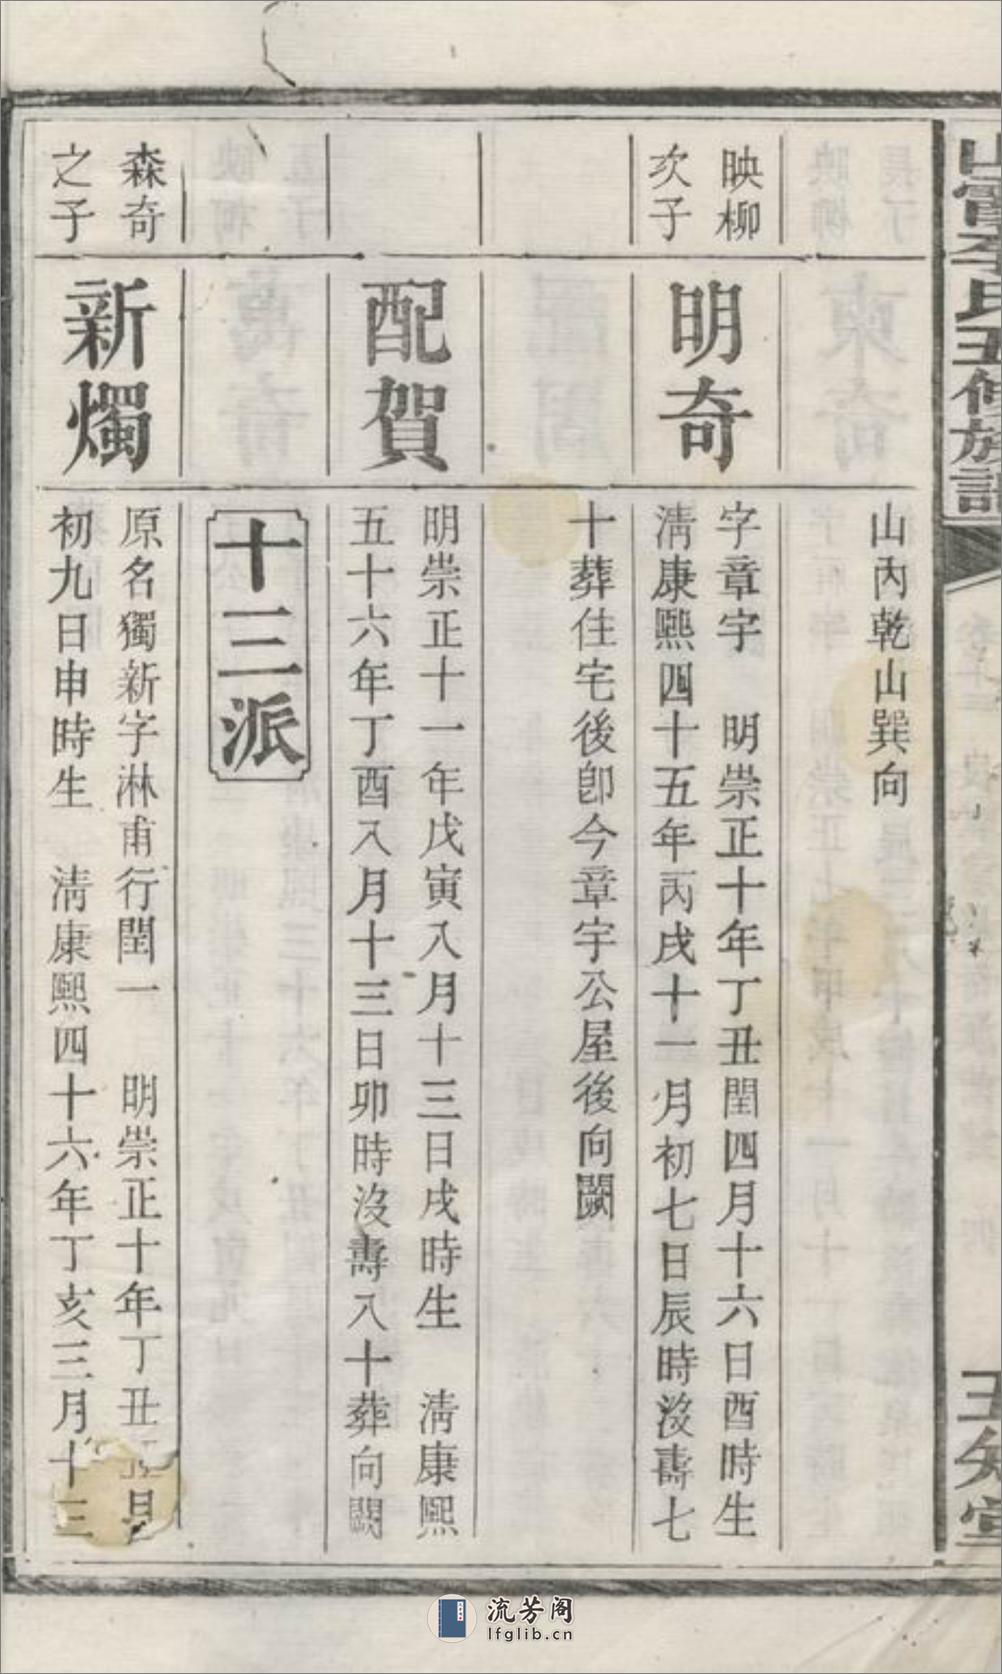 李氏五修族譜
山內乾山巽向
映柳
次子
明奇
字章宇　明崇正十年丁丑閏四月十六日酉時生
淸康熙四十五年丙戌十一月初七日辰時沒壽七
十葬住宅後卽今章宇公屋後向闕
配賀
明崇正十一年戊寅八月十三日戌時生　淸康熙
五十六年丁酉八月十三日卯時沒壽八十葬向闕
十三派
森奇
之子
新燭
原名獨新字淋甫行閏一　明崇正十年丁丑月
初九日申時生　淸康熙四十六年丁亥三月十三
流芳阁
lfglib.cn